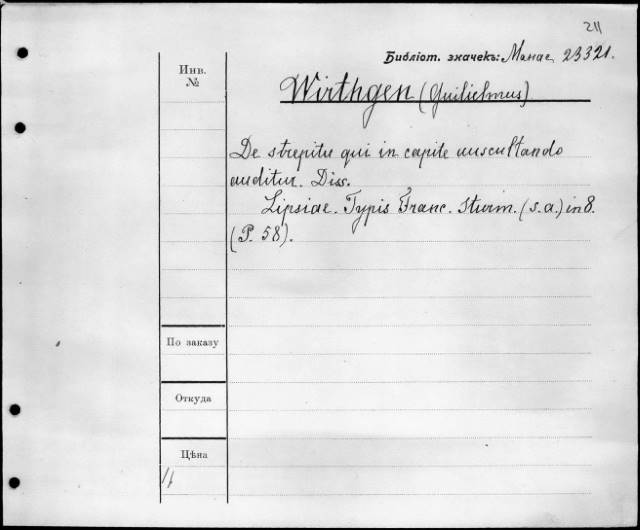 211
Библіот. значекъ: Манас 23321.
Инв.
№
Wirthgen (Guilielmus)
De strepitu qui in capite auscultando
auditur. Diss.
Lipsiae. Typis Franc. Sturm. (s.a.) in 8.
(P. 58).
По заказу
Откуда
Цѣна